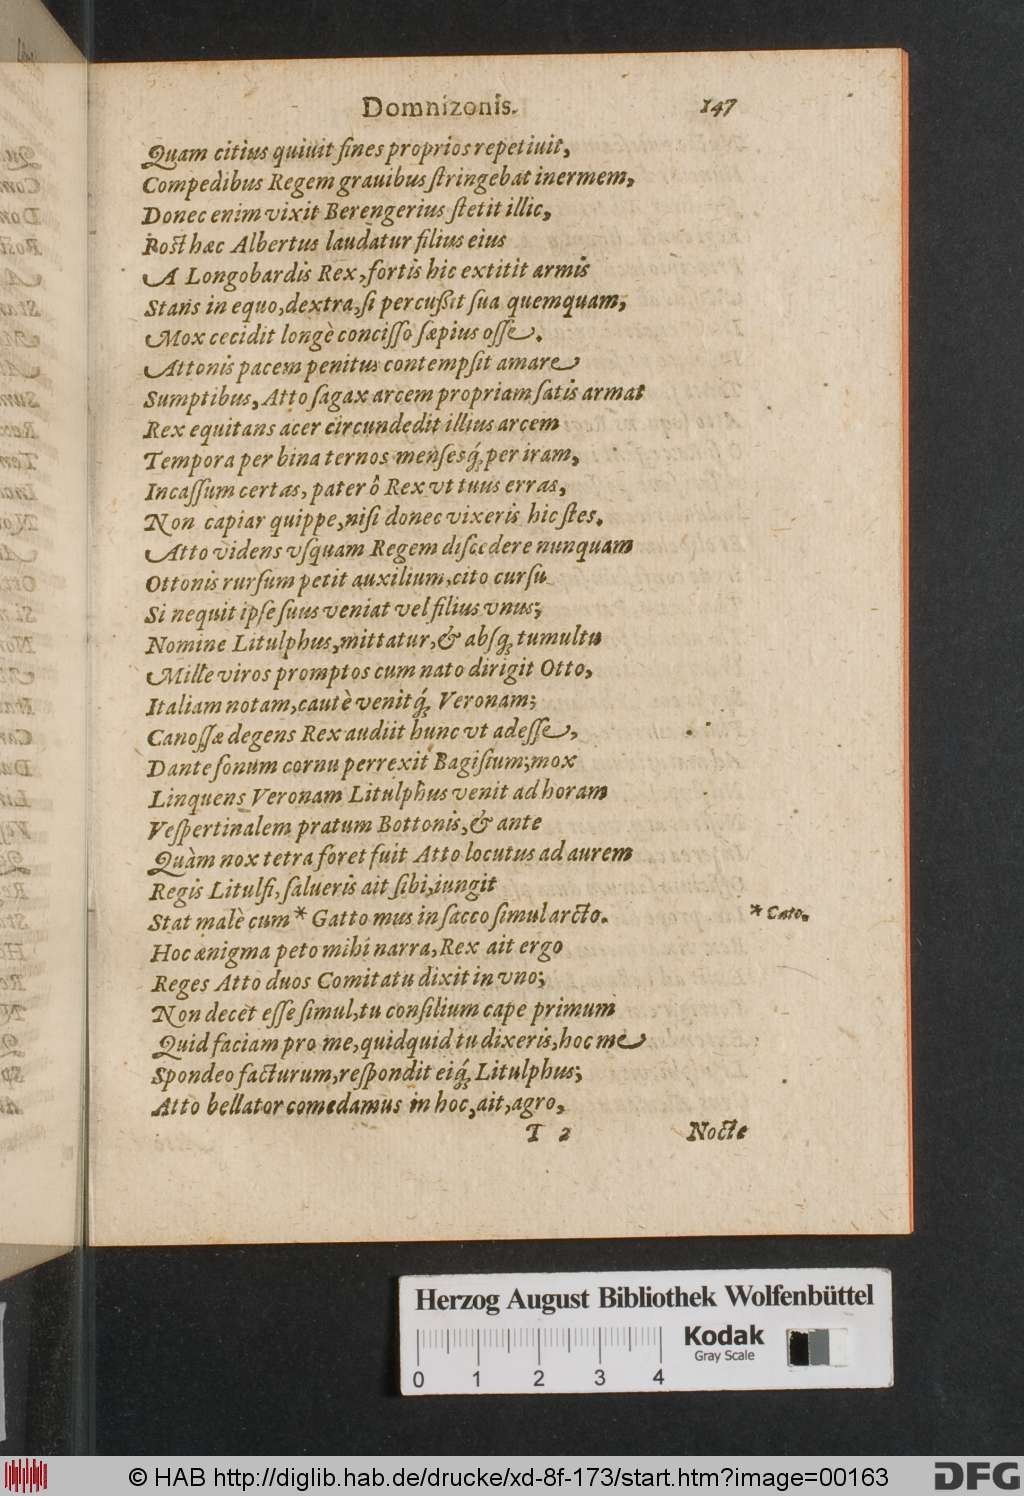 Domnizonis. 147
Quam citius quiuit fines proprios repetiuit,
Compedibus Regem grauibus stringebat inermem,
Donec enim vixit Berengerius stetit illic,
Post hæc Albertus laudatur filius eius
A Longobardis Rex, fortis hic extitit armis
Stans in equo, dextra, si percußit sua quemquam,
Mox cecidit longè concisso sæpius osse.
Attonis pacem penitus contempsit amare
Sumptibus, Atto sagax arcem propriam satis armat
Rex equitans acer circundedit illius arcem
Tempora per bina ternos mensesq́; per iram,
Incassum certas, pater ô Rex vt tuus erras,
Non capiar quippe, nisi donec vixeris hic stes.
Atto videns vsquam Regem discedere nunquam
Ottonis rursum petit auxilium, cito cursu
Si nequit ipse suus veniat vel filius vnus;
Nomine Litulphus, mittatur, & absq; tumultu
Mille viros promptos cum nato dirigit Otto,
Italiam notam, cautè venitq́; Veronam;
Canossæ degens Rex audiit hunc vt adesse,
Dante sonum cornu perrexit Bagisium; mox
Linquens Veronam Litulphus venit ad horam
Vespertinalem pratum Bottonis, & ante
Quàm nox tetra foret fuit Atto locutus ad aurem
Regis Litulfi, salueris ait sibi, iungit
Stat malè cum * Gatto mus in sacco simul arcto. * Cato.
Hoc ænigma peto mihi narra, Rex ait ergo
Reges Atto duos Comitatu dixit in vno;
Non decet esse simul, tu consilium cape primum
Quid faciam pro me, quidquid tu dixeris, hoc me
Spondeo facturum, respondit eiq́; Litulphus;
Atto bellator comedamus in hoc, ait, agro,
T 2 Nocte
Herzog August Bibliothek Wolfenbüttel
Kodak
Gray Scale
0 1 2 3 4
© HAB http://diglib.hab.de/drucke/xd-8f-173/start.htm?image=00163
DFG